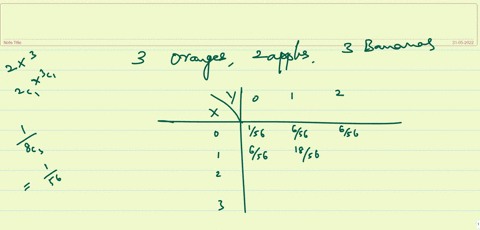 Note Title
31-05-2022
3 oranges, 2 apples. 3 Bananas
2 x 3
2c₁ x 3c₁
1/8c₃
= 1/56
X Y 0 1 2
0 1/56 6/56 6/56
1 6/56 18/56
2
3